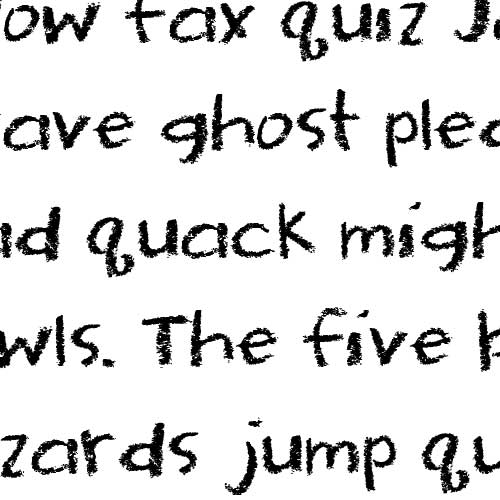 ow fax quiz J
ave ghost ple
id quack migh
wls. The five b
zards jump qu